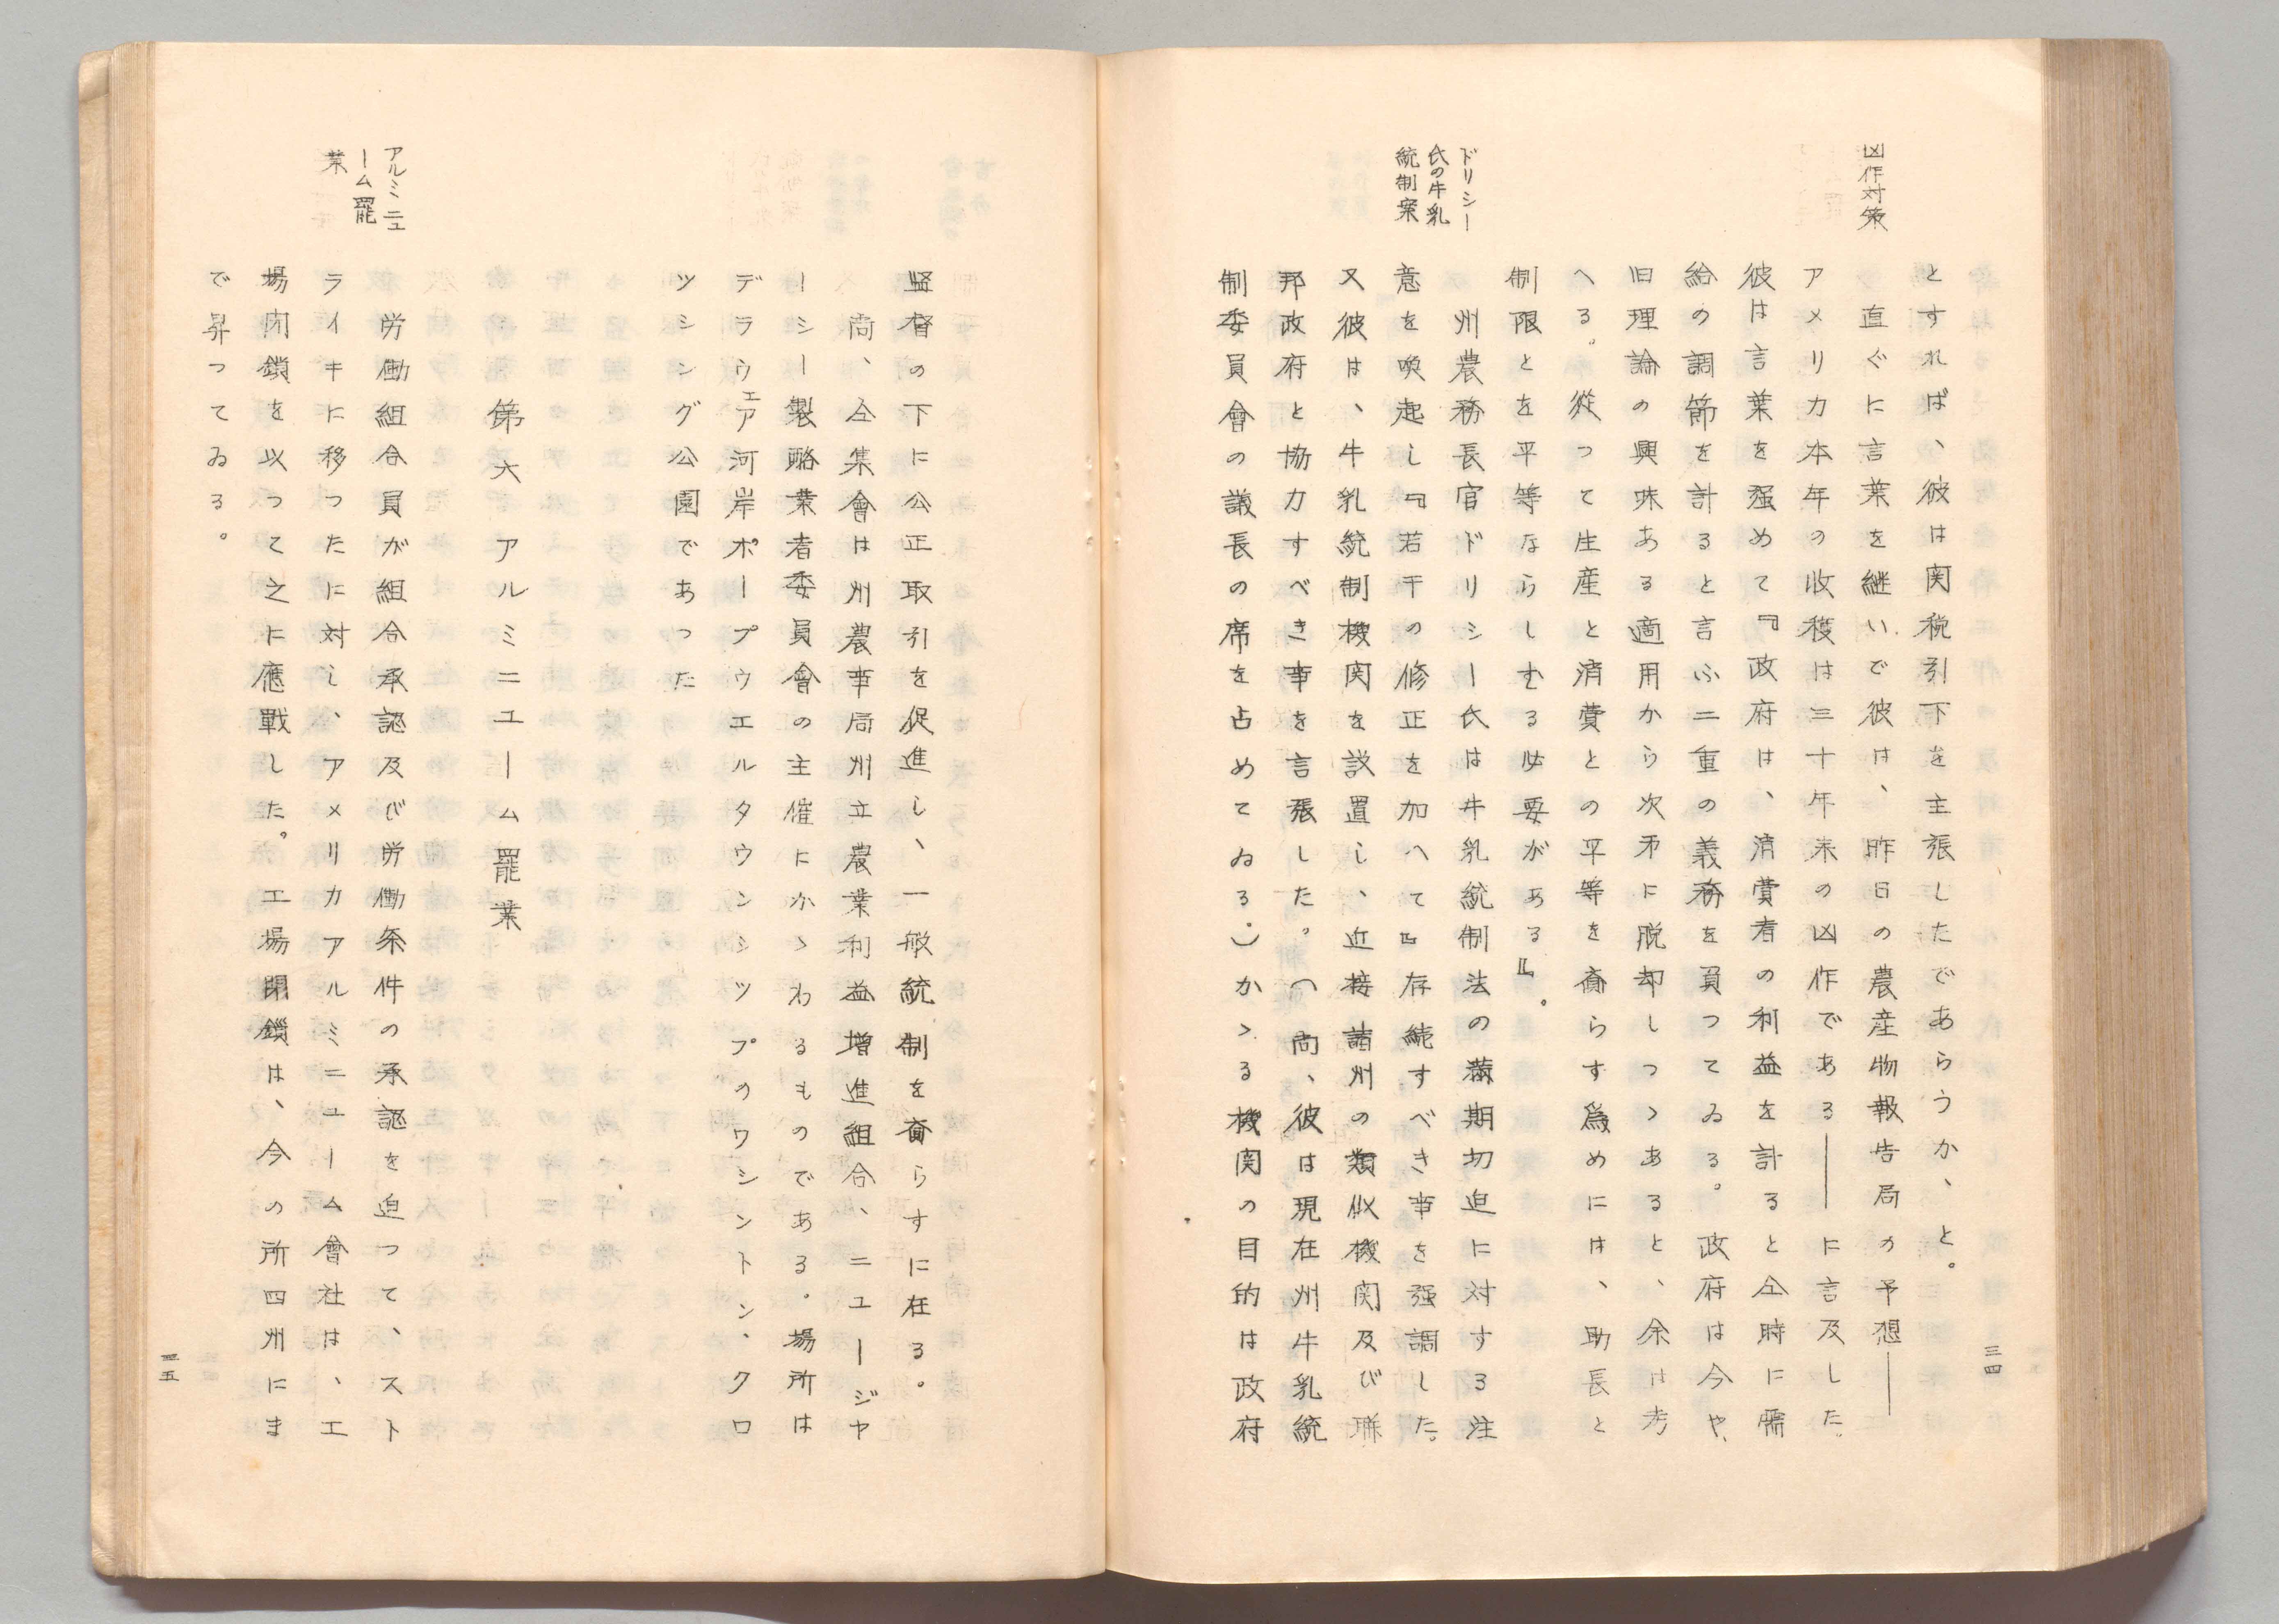 凶作対策
とすれば、彼は関税引下を主張したであらうか、と。
直ぐに言葉を継いで彼は、昨日の農産物報告局の予想――
アメリカ本年の收穫は三十年来の凶作である――に言及した。
彼は言葉を强めて『政府は、消費者の利益を計ると仝時に需
給の調節を計ると言ふ二重の義務を負つてゐる。政府は今や、
旧理論の興味ある適用から次第に脱却しつゝあると、余は考
へる。従つて生産と消費との平等を齎らす爲めには、助長と
制限とを平等ならしむる必要がある』。
ドリシー
氏の牛乳
統制案
州農務長官ドリシー氏は牛乳統制法の満期切迫に対する注
意を喚起し『若干の修正を加へて』存続すべき事を强調した。
又彼は、牛乳統制機関を設置し、近接諸州の類似機関及び聯
邦政府と協力すべき事を言張した。（尚、彼は現在州牛乳統
制委員會の議長の席を占めてゐる。）かゝる機関の目的は政府
三四
監督の下に公正取引を促進し、一般統制を齎らすに在る。
尚、仝集會は州農事局州立農業利益増進組合、ニユージヤ
ーシー製酪業者委員會の主催にかゝわるものである。場所は
デラウェア河岸ポープウエルタウンシツプのワシントン、クロ
ツシング公園であつた
第六　アルミニユーム罷業
アルミニユ
ーム罷
業
労働組合員が組合承認及び労働条件の承認を迫つて、スト
ライキに移つたに対し、アメリカアルミニユーム會社は、工
場閉鎖を以つて之に應戰した。工場閉鎖は、今の所四州にま
で昇つてゐる。
三五